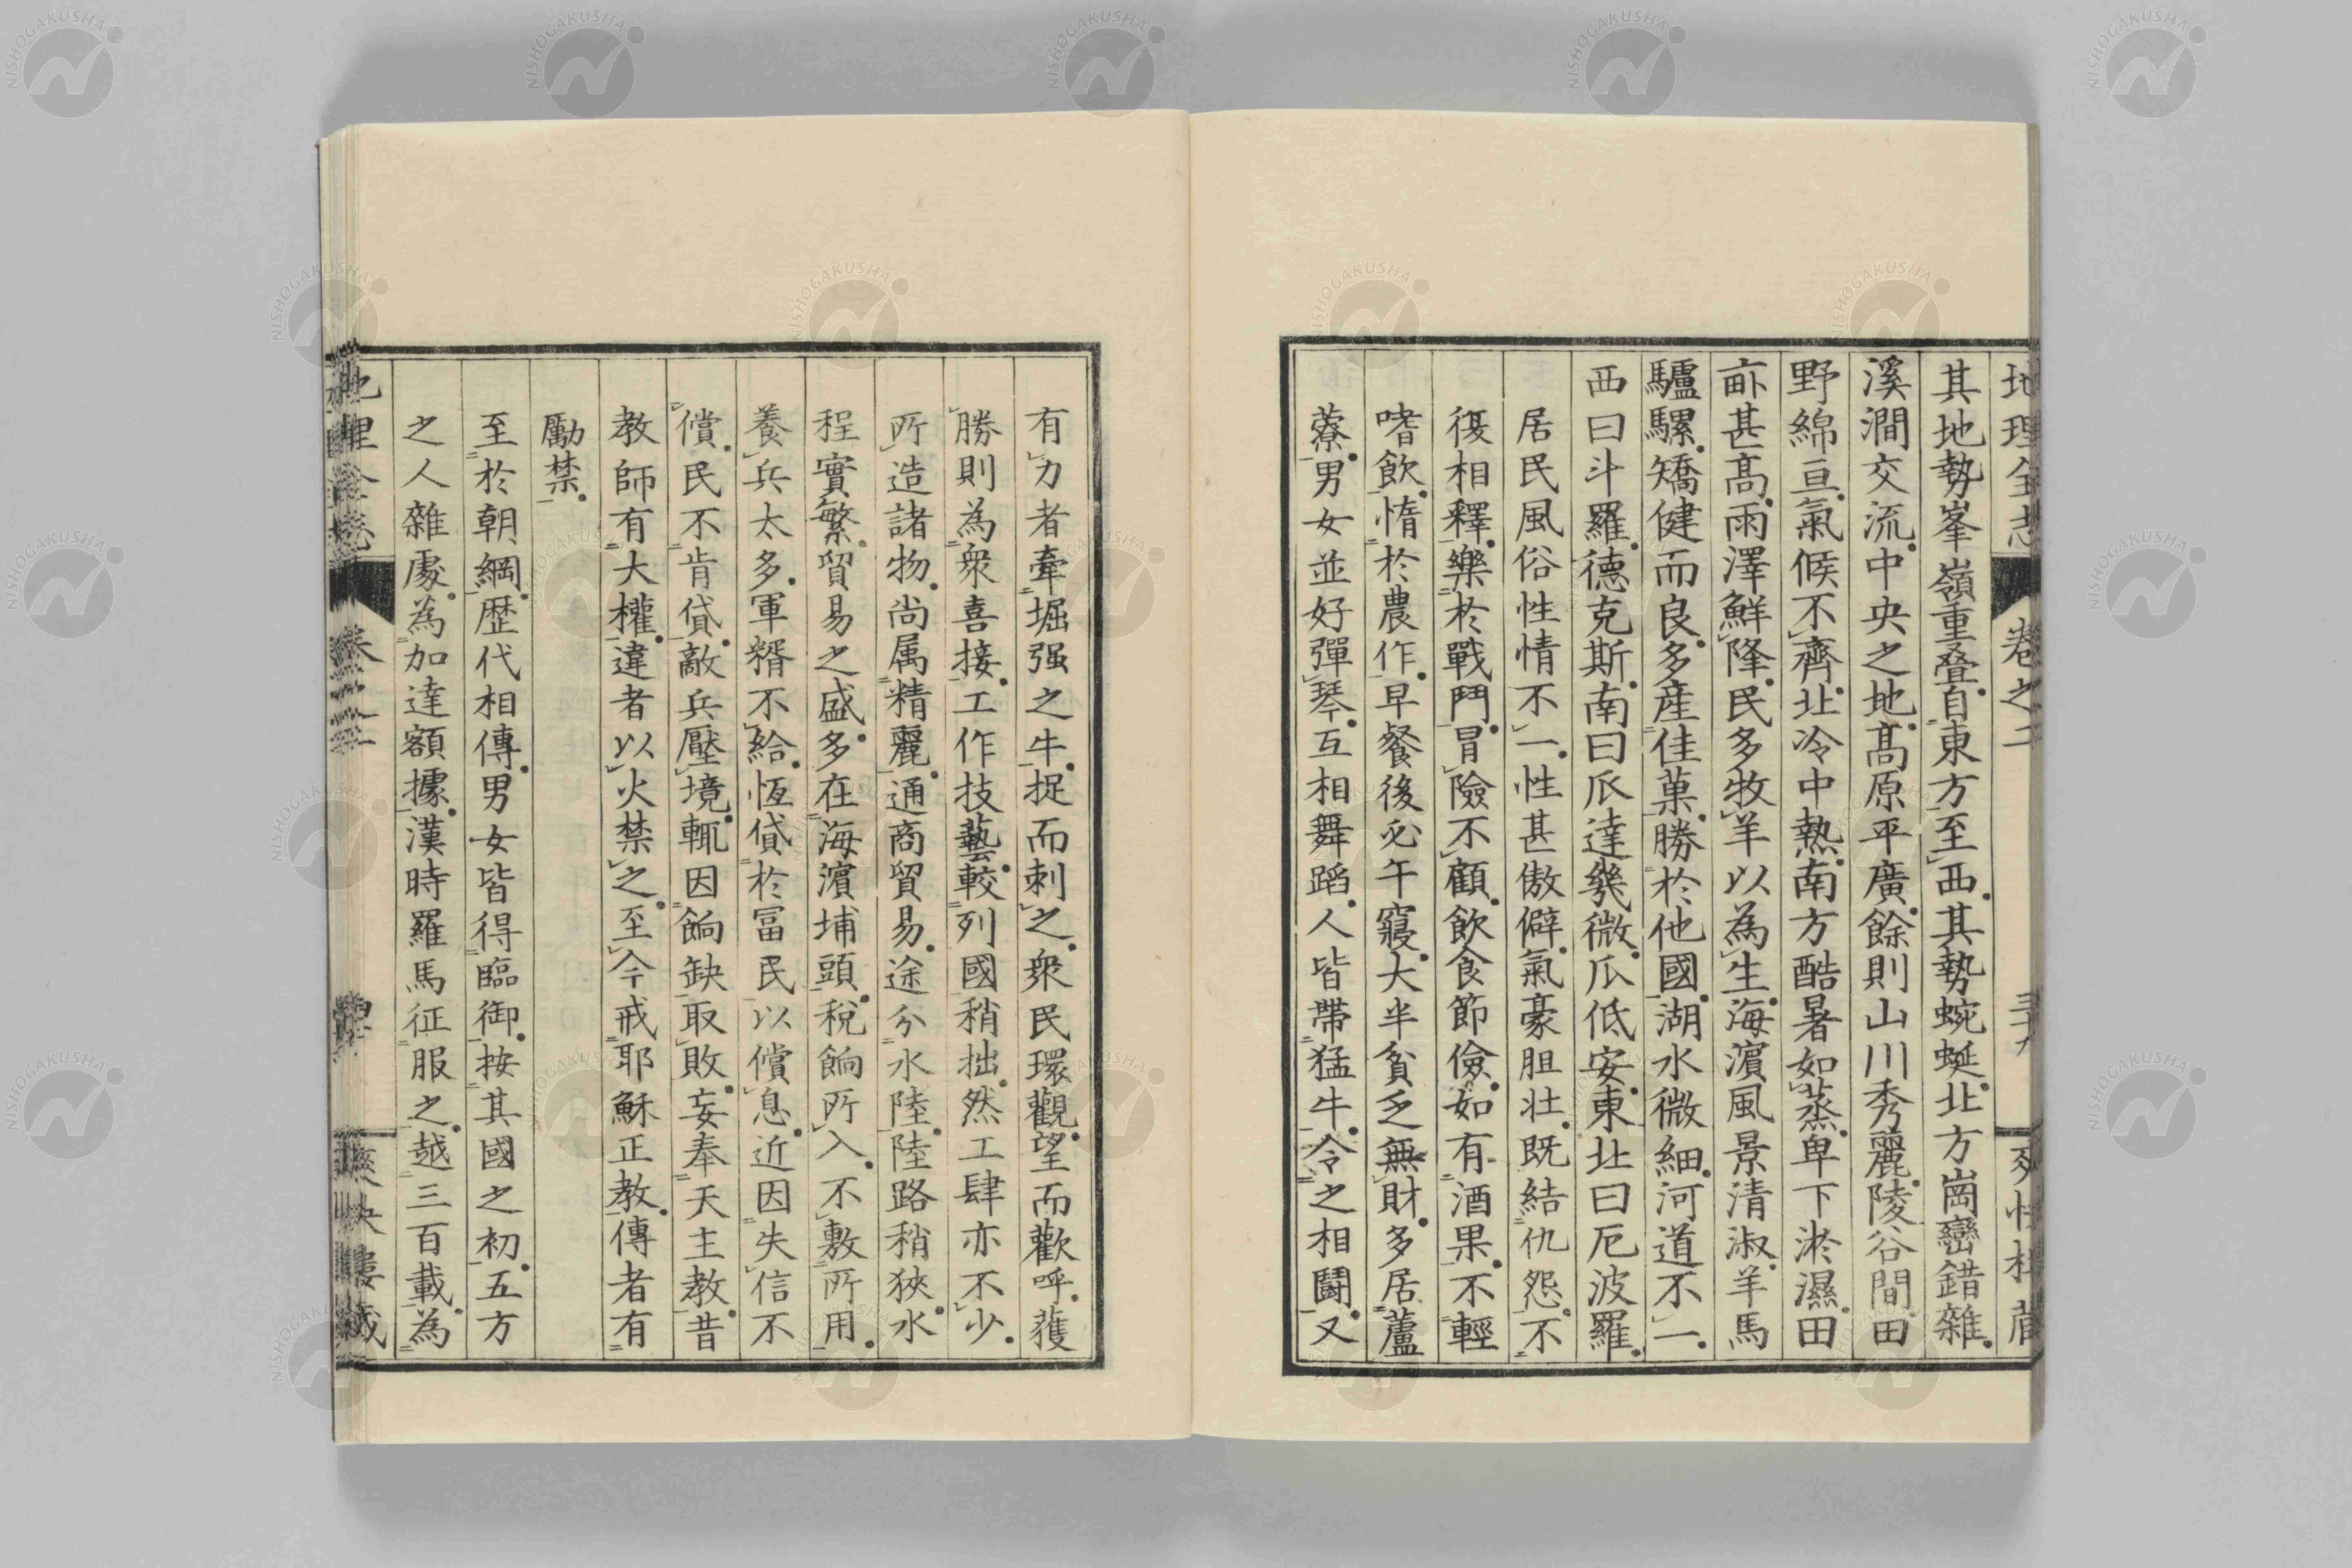 地理全志 卷之二 三十九 爽快樓藏
其地勢峯嶺重叠自東方至西其勢蜿蜒北方崗巒錯雜
溪澗交流中央之地高原平廣餘則山川秀麗陵谷間田
野綿亘氣候不齊北冷中熱南方酷暑如蒸卑下淤濕田
畝甚高雨澤鮮降民多牧羊以為生海濵風景清淑羊馬
驢騾矯健而良多産佳菓勝於他國湖水微細河道不一
西曰斗羅德克斯南曰瓜達幾微瓜低安東北曰厄波羅
居民風俗性情不一性甚傲僻氣豪胆壮既結仇怨不
復相釋樂於戰鬥冒險不顧飲食節儉如有酒果不輕
嗜飲惰於農作早餐後必午寢大半貧乏無財多居蘆
藔男女並好彈琴互相舞蹈人皆帶猛牛令之相鬭又
有力者牽堀强之牛捉而刺之衆民環觀望而歡呼獲
勝則為衆喜接工作技藝較列國稍拙然工肆亦不少
所造諸物尚属精麗通商貿易途分水陸陸路稍狹水
程實繁貿易之盛多在海濵埔頭稅餉所入不敷所用
養兵太多軍糈不給恆貸於冨民以償息近因失信不
償民不肯貸敵兵壓境輒因餉缺取敗妄奉天主教昔
教師有大權違者以火禁之至今戒耶穌正教傳者有
勵禁
至於朝綱歷代相傳男女皆得臨御按其國之初五方
之人雜處為加達額據漢時羅馬征服之越三百載為
地理全志 卷之二 四十 爽快樓藏